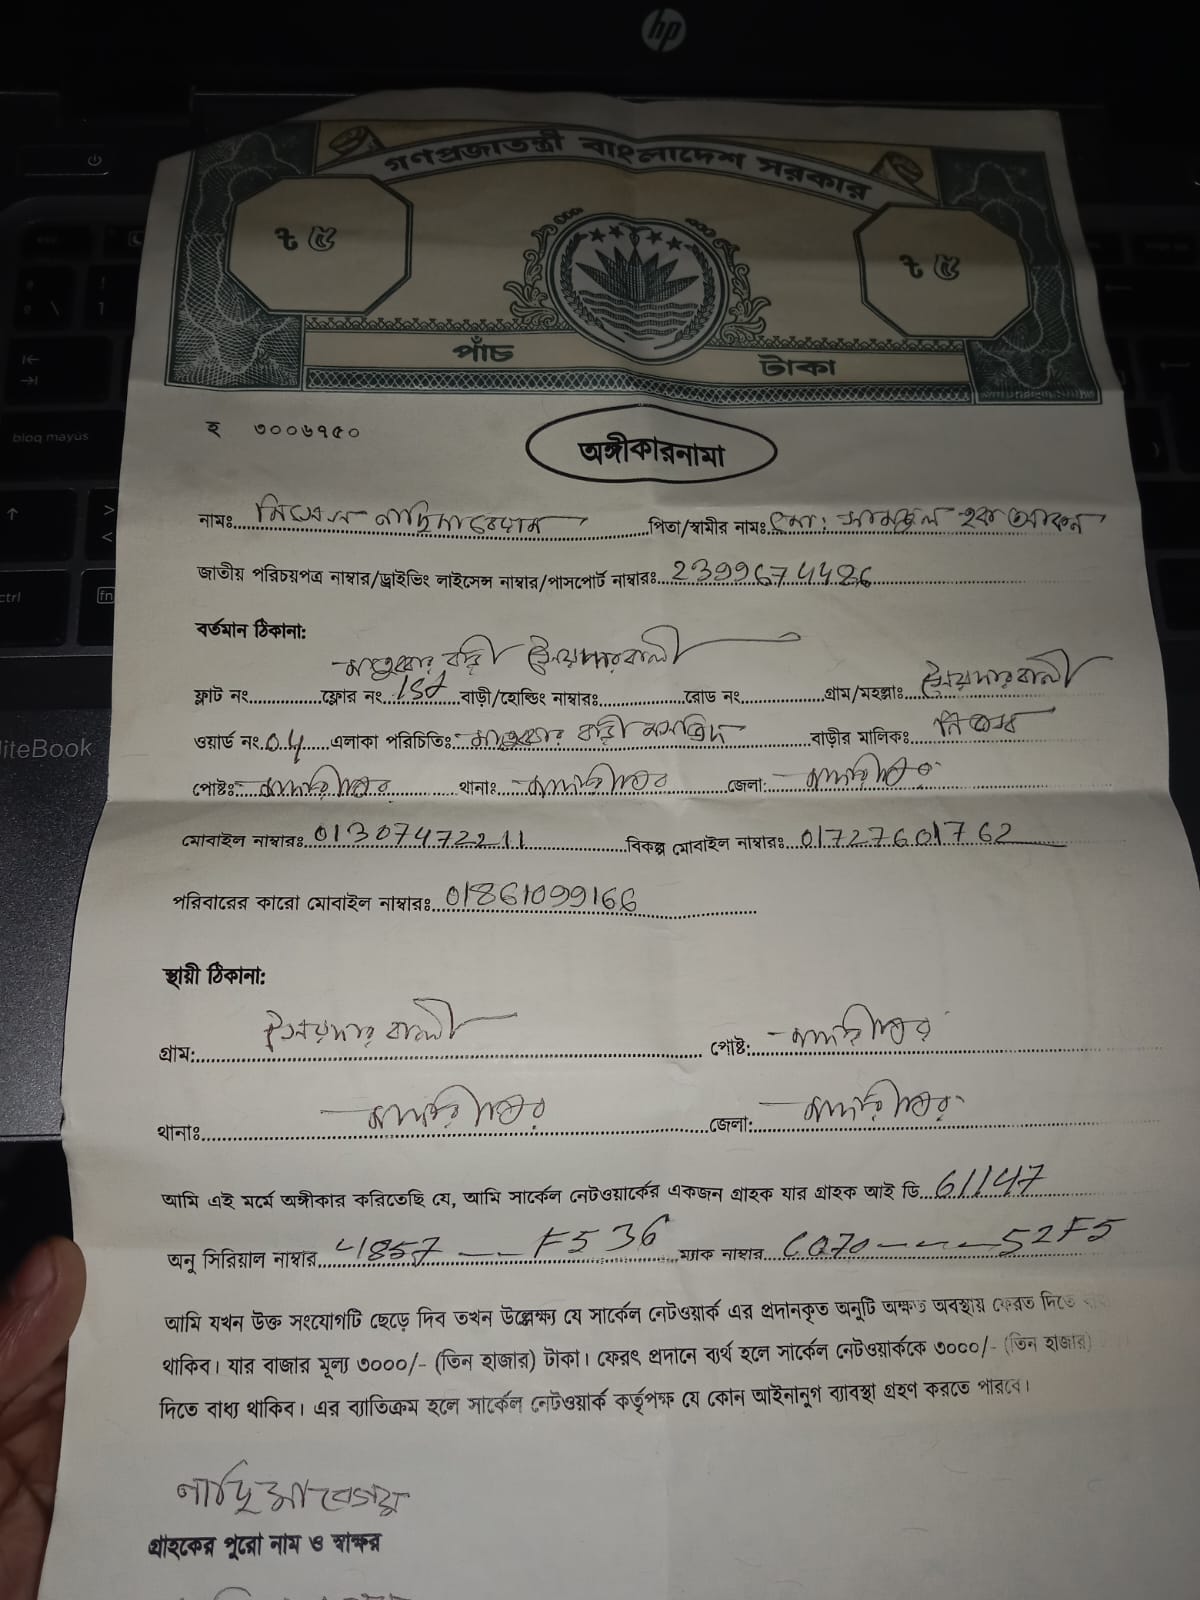 hp
গণপ্রজাতন্ত্রী বাংলাদেশ সরকার
৳ ৫
৳ ৫
পাঁচ টাকা
হ ৩০০৬৭৫০
অঙ্গীকারনামা
নামঃ নাদিরা বেগম পিতা/স্বামীর নামঃ মো: হক
জাতীয় পরিচয়পত্র নাম্বার/ড্রাইভিং লাইসেন্স নাম্বার/পাসপোর্ট নাম্বারঃ 2399674486
বর্তমান ঠিকানা:
ফ্লাট নং ফ্লোর নং 1st বাড়ী/হোল্ডিং নাম্বারঃ রোড নং গ্রাম/মহল্লাঃ
ওয়ার্ড নং 04 এলাকা পরিচিতিঃ মসজিদ বাড়ীর মালিকঃ নিজের
পোষ্টঃ মাদারীপুর থানাঃ মাদারীপুর জেলা: মাদারীপুর
মোবাইল নাম্বারঃ 01307472211 বিকল্প মোবাইল নাম্বারঃ 01727601762
পরিবারের কারো মোবাইল নাম্বারঃ 01861099166
স্থায়ী ঠিকানা:
গ্রাম: পোষ্ট: মাদারীপুর
থানাঃ মাদারীপুর জেলা: মাদারীপুর
আমি এই মর্মে অঙ্গীকার করিতেছি যে, আমি সার্কেল নেটওয়ার্কের একজন গ্রাহক যার গ্রাহক আই ডি 61147
অনু সিরিয়াল নাম্বার 4857 --- F536 ম্যাক নাম্বার C070 ---- 52F5
আমি যখন উক্ত সংযোগটি ছেড়ে দিব তখন উল্লেক্ষ্য যে সার্কেল নেটওয়ার্ক এর প্রদানকৃত অনুটি অক্ষত অবস্থায় ফেরত দিতে
থাকিব। যার বাজার মূল্য ৩০০০/- (তিন হাজার) টাকা। ফেরৎ প্রদানে ব্যর্থ হলে সার্কেল নেটওয়ার্ককে ৩০০০/- (তিন হাজার)
দিতে বাধ্য থাকিব। এর ব্যাতিক্রম হলে সার্কেল নেটওয়ার্ক কর্তৃপক্ষ যে কোন আইনানুগ ব্যাবস্থা গ্রহণ করতে পারবে।
নাদিরা বেগম
গ্রাহকের পুরো নাম ও স্বাক্ষর
bloq mayús
ctrl
fn
liteBook